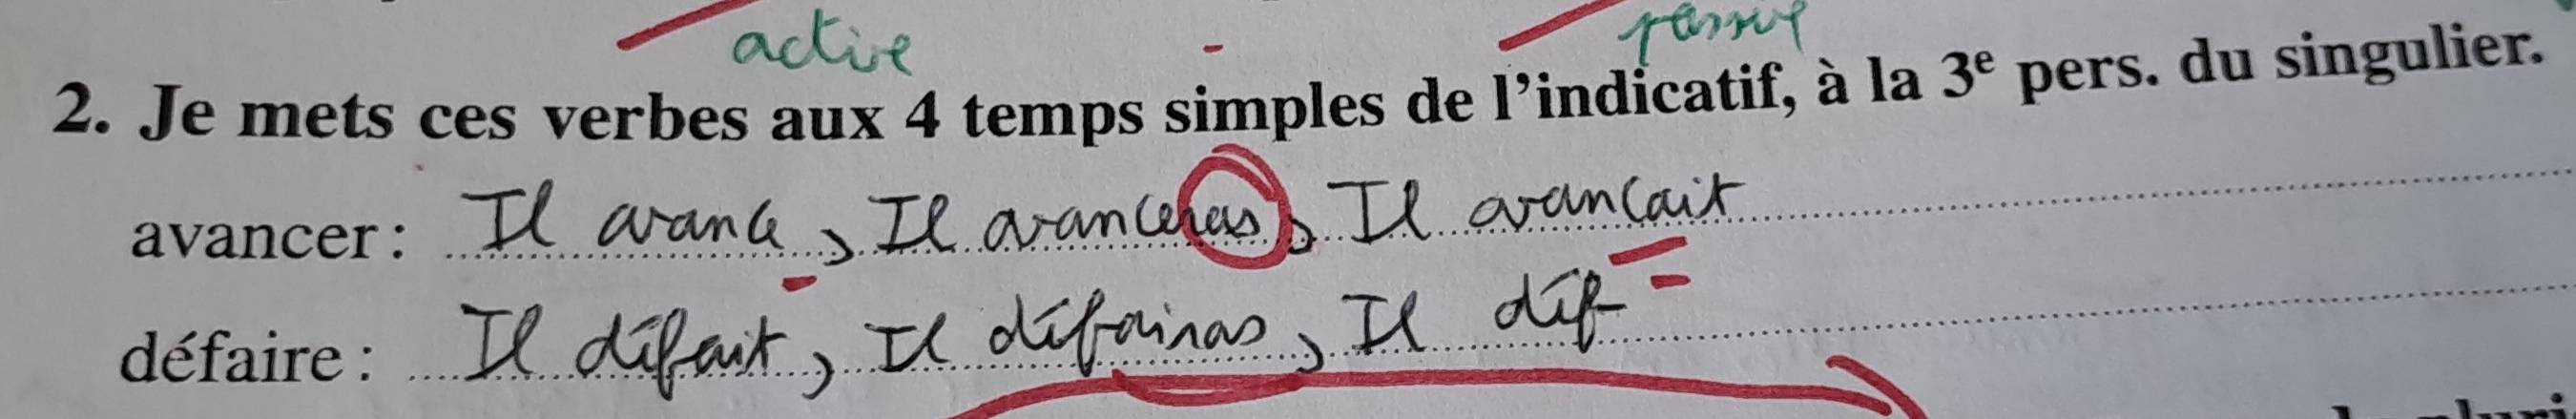 active passive
2. Je mets ces verbes aux 4 temps simples de l'indicatif, à la 3e pers. du singulier.
avancer : Il avance, Il avanceras, Il avancait
défaire : Il défait, Il défairas, Il déf